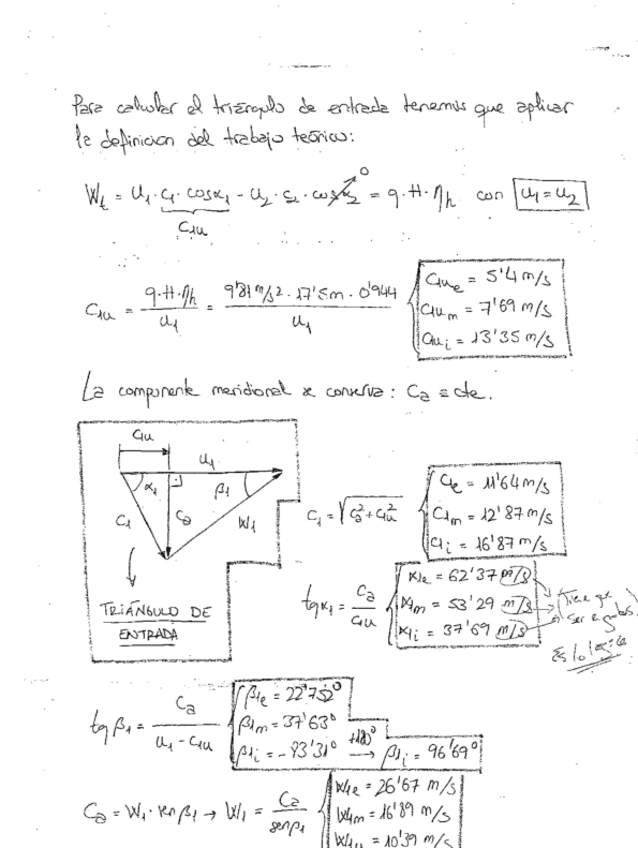 Para calcular el triángulo de entrada tenemos que aplicar
la definicion del trabajo teórico:
Wt = u1·c1·cosα1 - u2·c2·cosα2 = g·H·ηh con u1 = u2
0
c1u
c1u = g·H·ηh / u1 = 9'81 m/s2 · 17'5m · 0'944 / u1
c1ue = 5'4 m/s
c1um = 7'69 m/s
c1ui = 13'35 m/s
La componente meridional se conserva: Ca ≡ cte.
c1u
u1
α1
β1
c1
ca
W1
TRIÁNGULO DE
ENTRADA
c1 = √ca² + c1u²
c1e = 11'64 m/s
c1m = 12'87 m/s
c1i = 16'87 m/s
tgα1 = Ca / c1u
α1e = 62'37 m/s
α1m = 53'29 m/s
α1i = 37'69 m/s
Tiene que
ser grados
Es lo lógico
tg β1 = Ca / u1 - c1u
β1e = 22'752°
β1m = 37'63°
β1i = -83'31° +180° → β1i = 96'69°
Ca = W1 · sen β1 → W1 = Ca / senβ1
W1e = 26'67 m/s
W1m = 16'89 m/s
= 10'39 m/s